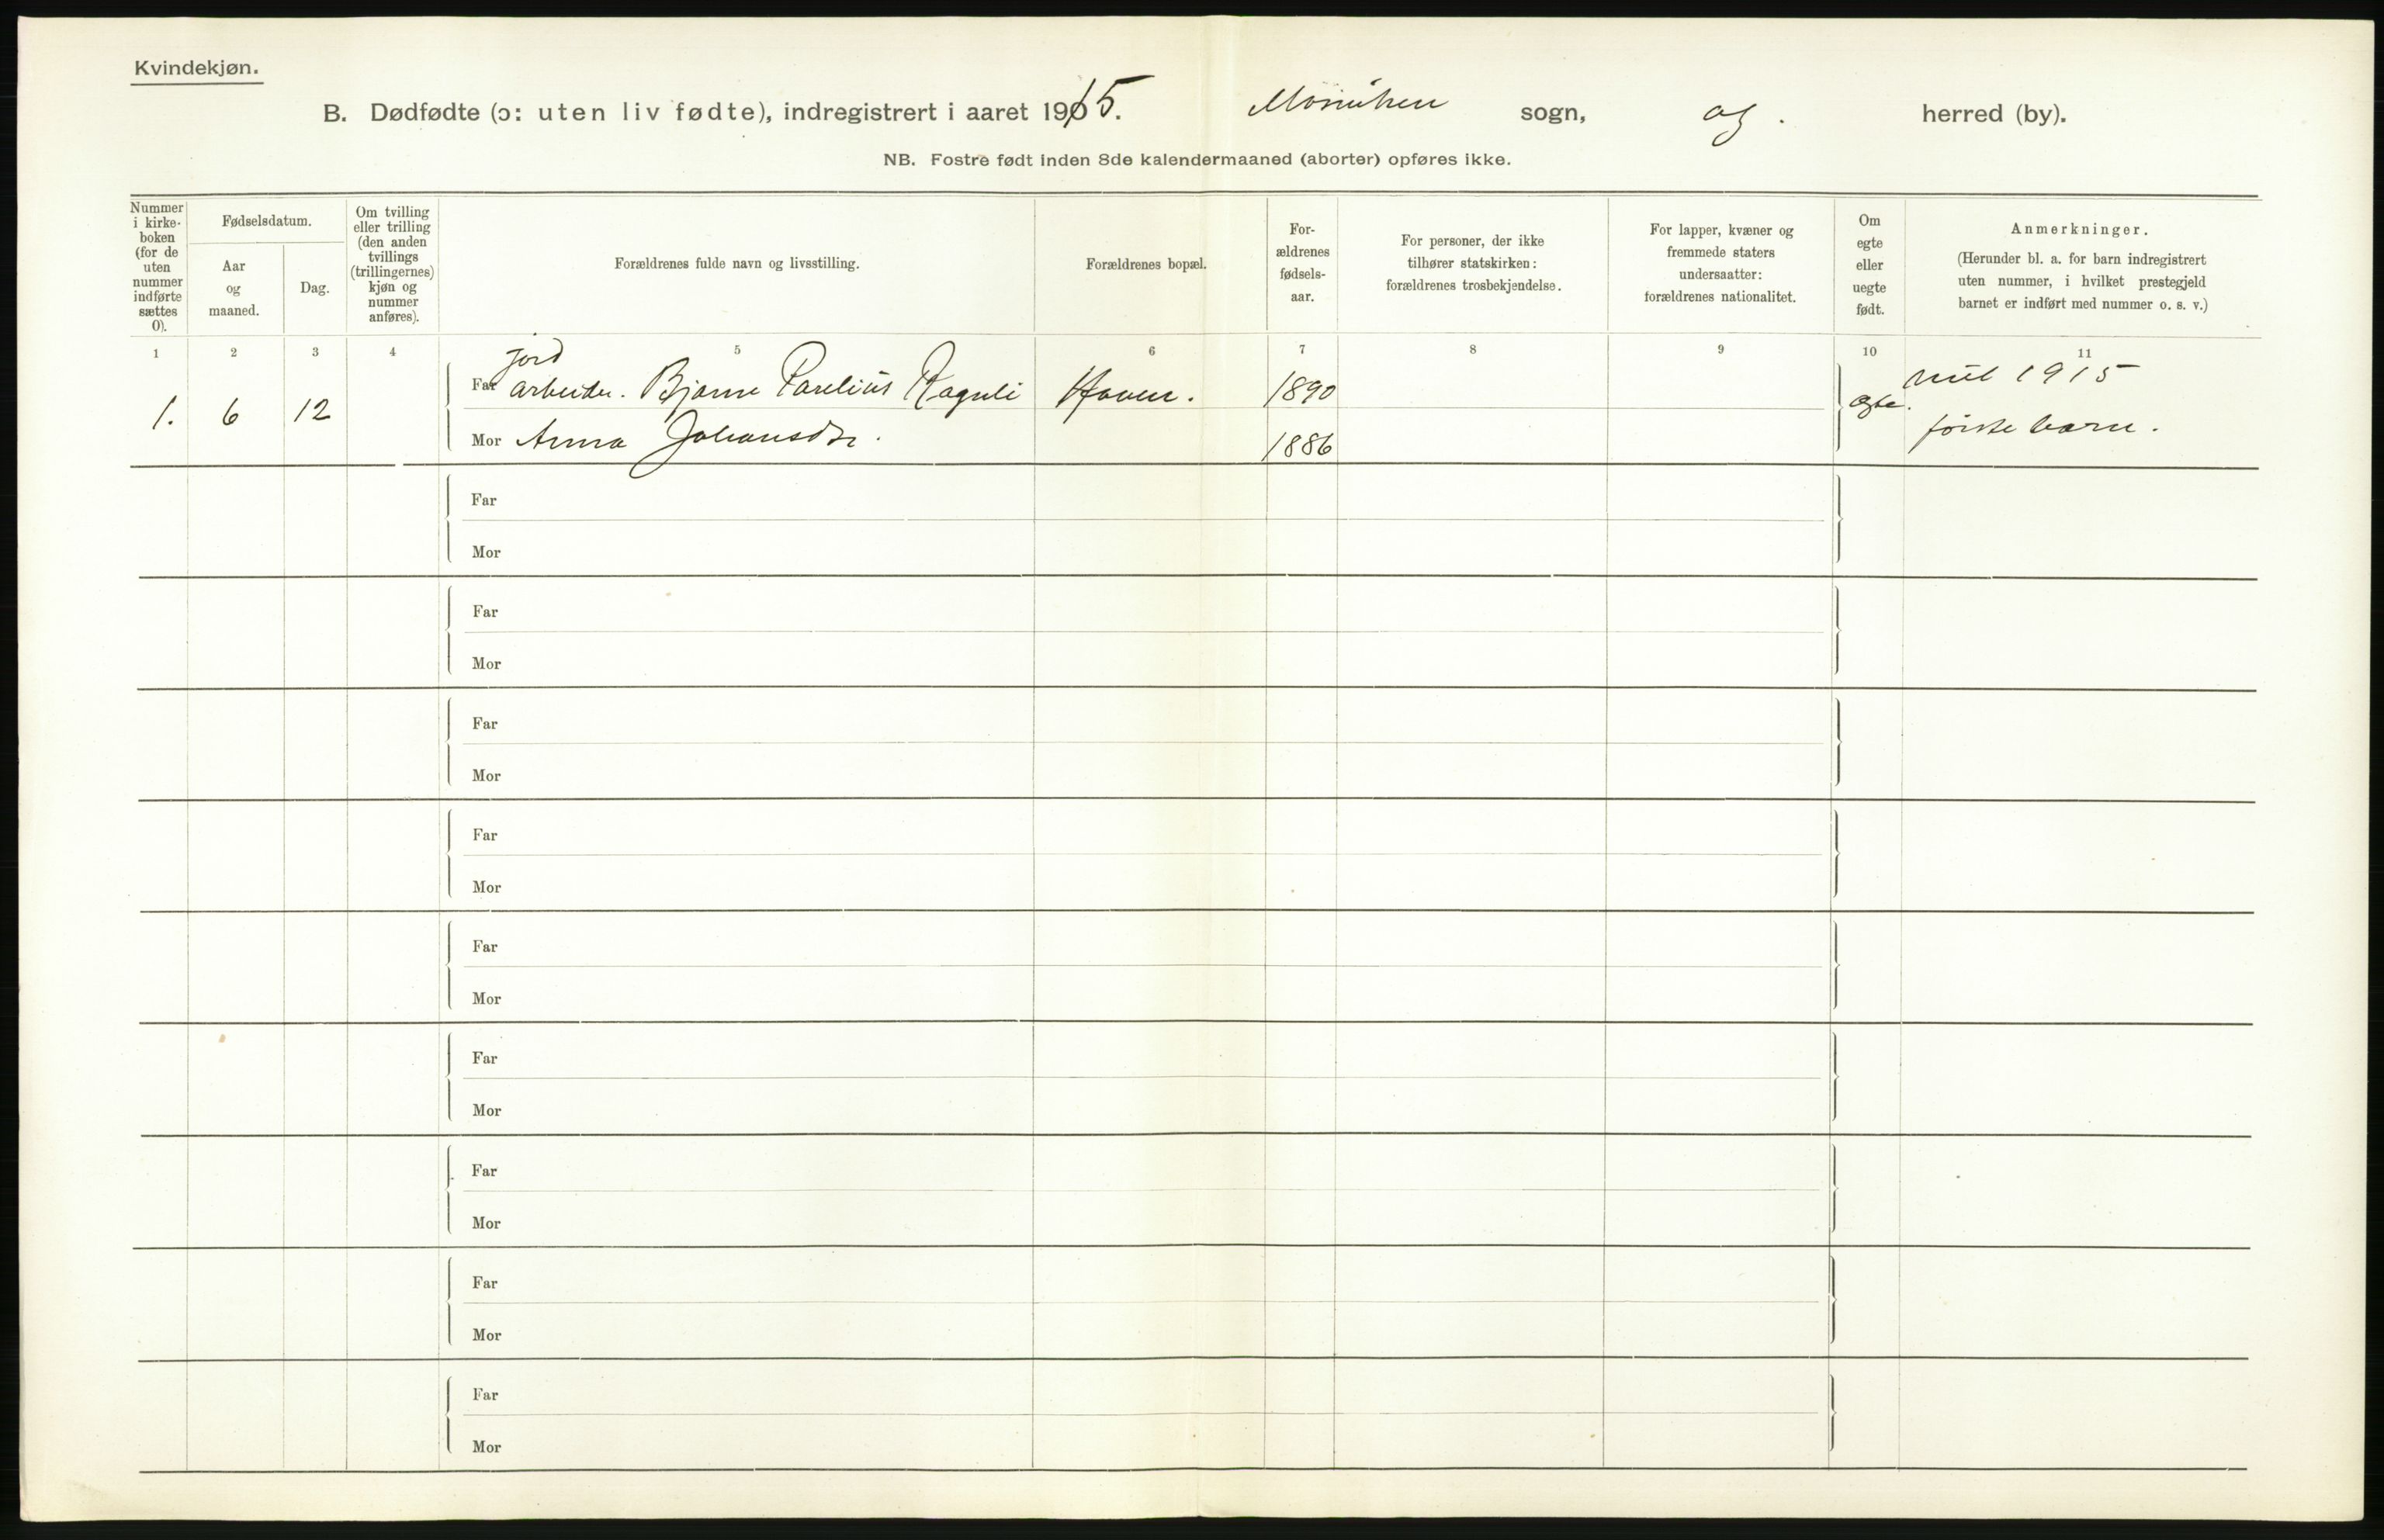 Kvindekjøn.
B. Dødfødte (ɔ: uten liv fødte), indregistrert i aaret 1915. sogn, og. herred (by).
NB. Fostre født inden 8de kalendermaaned (aborter) opføres ikke.
Nummer i kirke-boken (for de uten nummer indførte sættes 0).
Fødselsdatum.
Aar og maaned.
Dag.
Om tvilling eller trilling (den anden tvillings (trillingernes) kjøn og nummer anføres).
Forældrenes fulde navn og livsstilling.
Forældrenes bopæl.
For-ældrenes fødsels-aar.
For personer, der ikke tilhører statskirken: forældrenes trosbekjendelse.
For lapper, kvæner og fremmede staters undersaatter: forældrenes nationalitet.
Om egte eller uegte født.
Anmerkninger.
(Herunder bl. a. for barn indregistrert uten nummer, i hvilket prestegjeld barnet er indført med nummer o. s. v.)
1 2 3 4 5 6 7 8 9 10 11
1. 6 12
jord
Far arbeider. Bjarne Parelius Haven. 1890 egte. 1915
Mor Anna Johansdtr. 1886 første barn.
Far
Mor
Far
Mor
Far
Mor
Far
Mor
Far
Mor
Far
Mor
Far
Mor
Far
Mor
Far
Mor